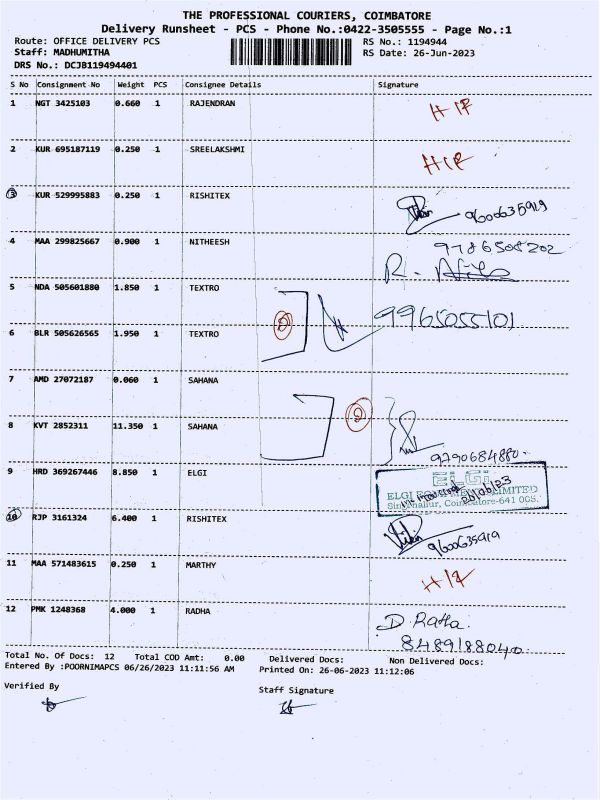 THE PROFESSIONAL COURIERS, COIMBATORE
Delivery Runsheet - PCS - Phone No.:0422-3505555 - Page No.:1
Route: OFFICE DELIVERY PCS RS No.: 1194944
Staff: MADHUMITHA RS Date: 26-Jun-2023
DRS No.: DCJB119494401
S No Consignment No Weight PCS Consignee Details Signature
1 NGT 3425103 0.660 1 RAJENDRAN
2 KUR 695187119 0.250 1 SREELAKSHMI
3 KUR 529995883 0.250 1 RISHITEX 9600635919
4 MAA 299825667 0.900 1 NITHEESH 9786508202
R.
5 NDA 505601880 1.850 1 TEXTRO
2 9965055101
6 BLR 505626565 1.950 1 TEXTRO
7 AMD 27072187 0.060 1 SAHANA
2
8 KVT 2852311 11.350 1 SAHANA
9790684880.
9 HRD 369267446 8.850 1 ELGI
ELGI
ELGI LIMITED
Singanallur, Coimbatore-641 005.
10 RJP 3161324 6.400 1 RISHITEX
9600635919
11 MAA 571483615 0.250 1 MARTHY
12 PMK 1248368 4.000 1 RADHA
D. Ratha.
8489188040.
Total No. Of Docs: 12 Total COD Amt: 0.00 Delivered Docs: Non Delivered Docs:
Entered By :POORNIMAPCS 06/26/2023 11:11:56 AM Printed On: 26-06-2023 11:12:06
Verified By Staff Signature